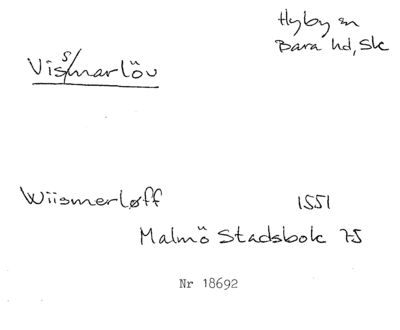 Hyby sn
Bara hd, Sk
Vissmarlöv
Wiismerløff 1551
Malmö Stadsbok 75
Nr 18692